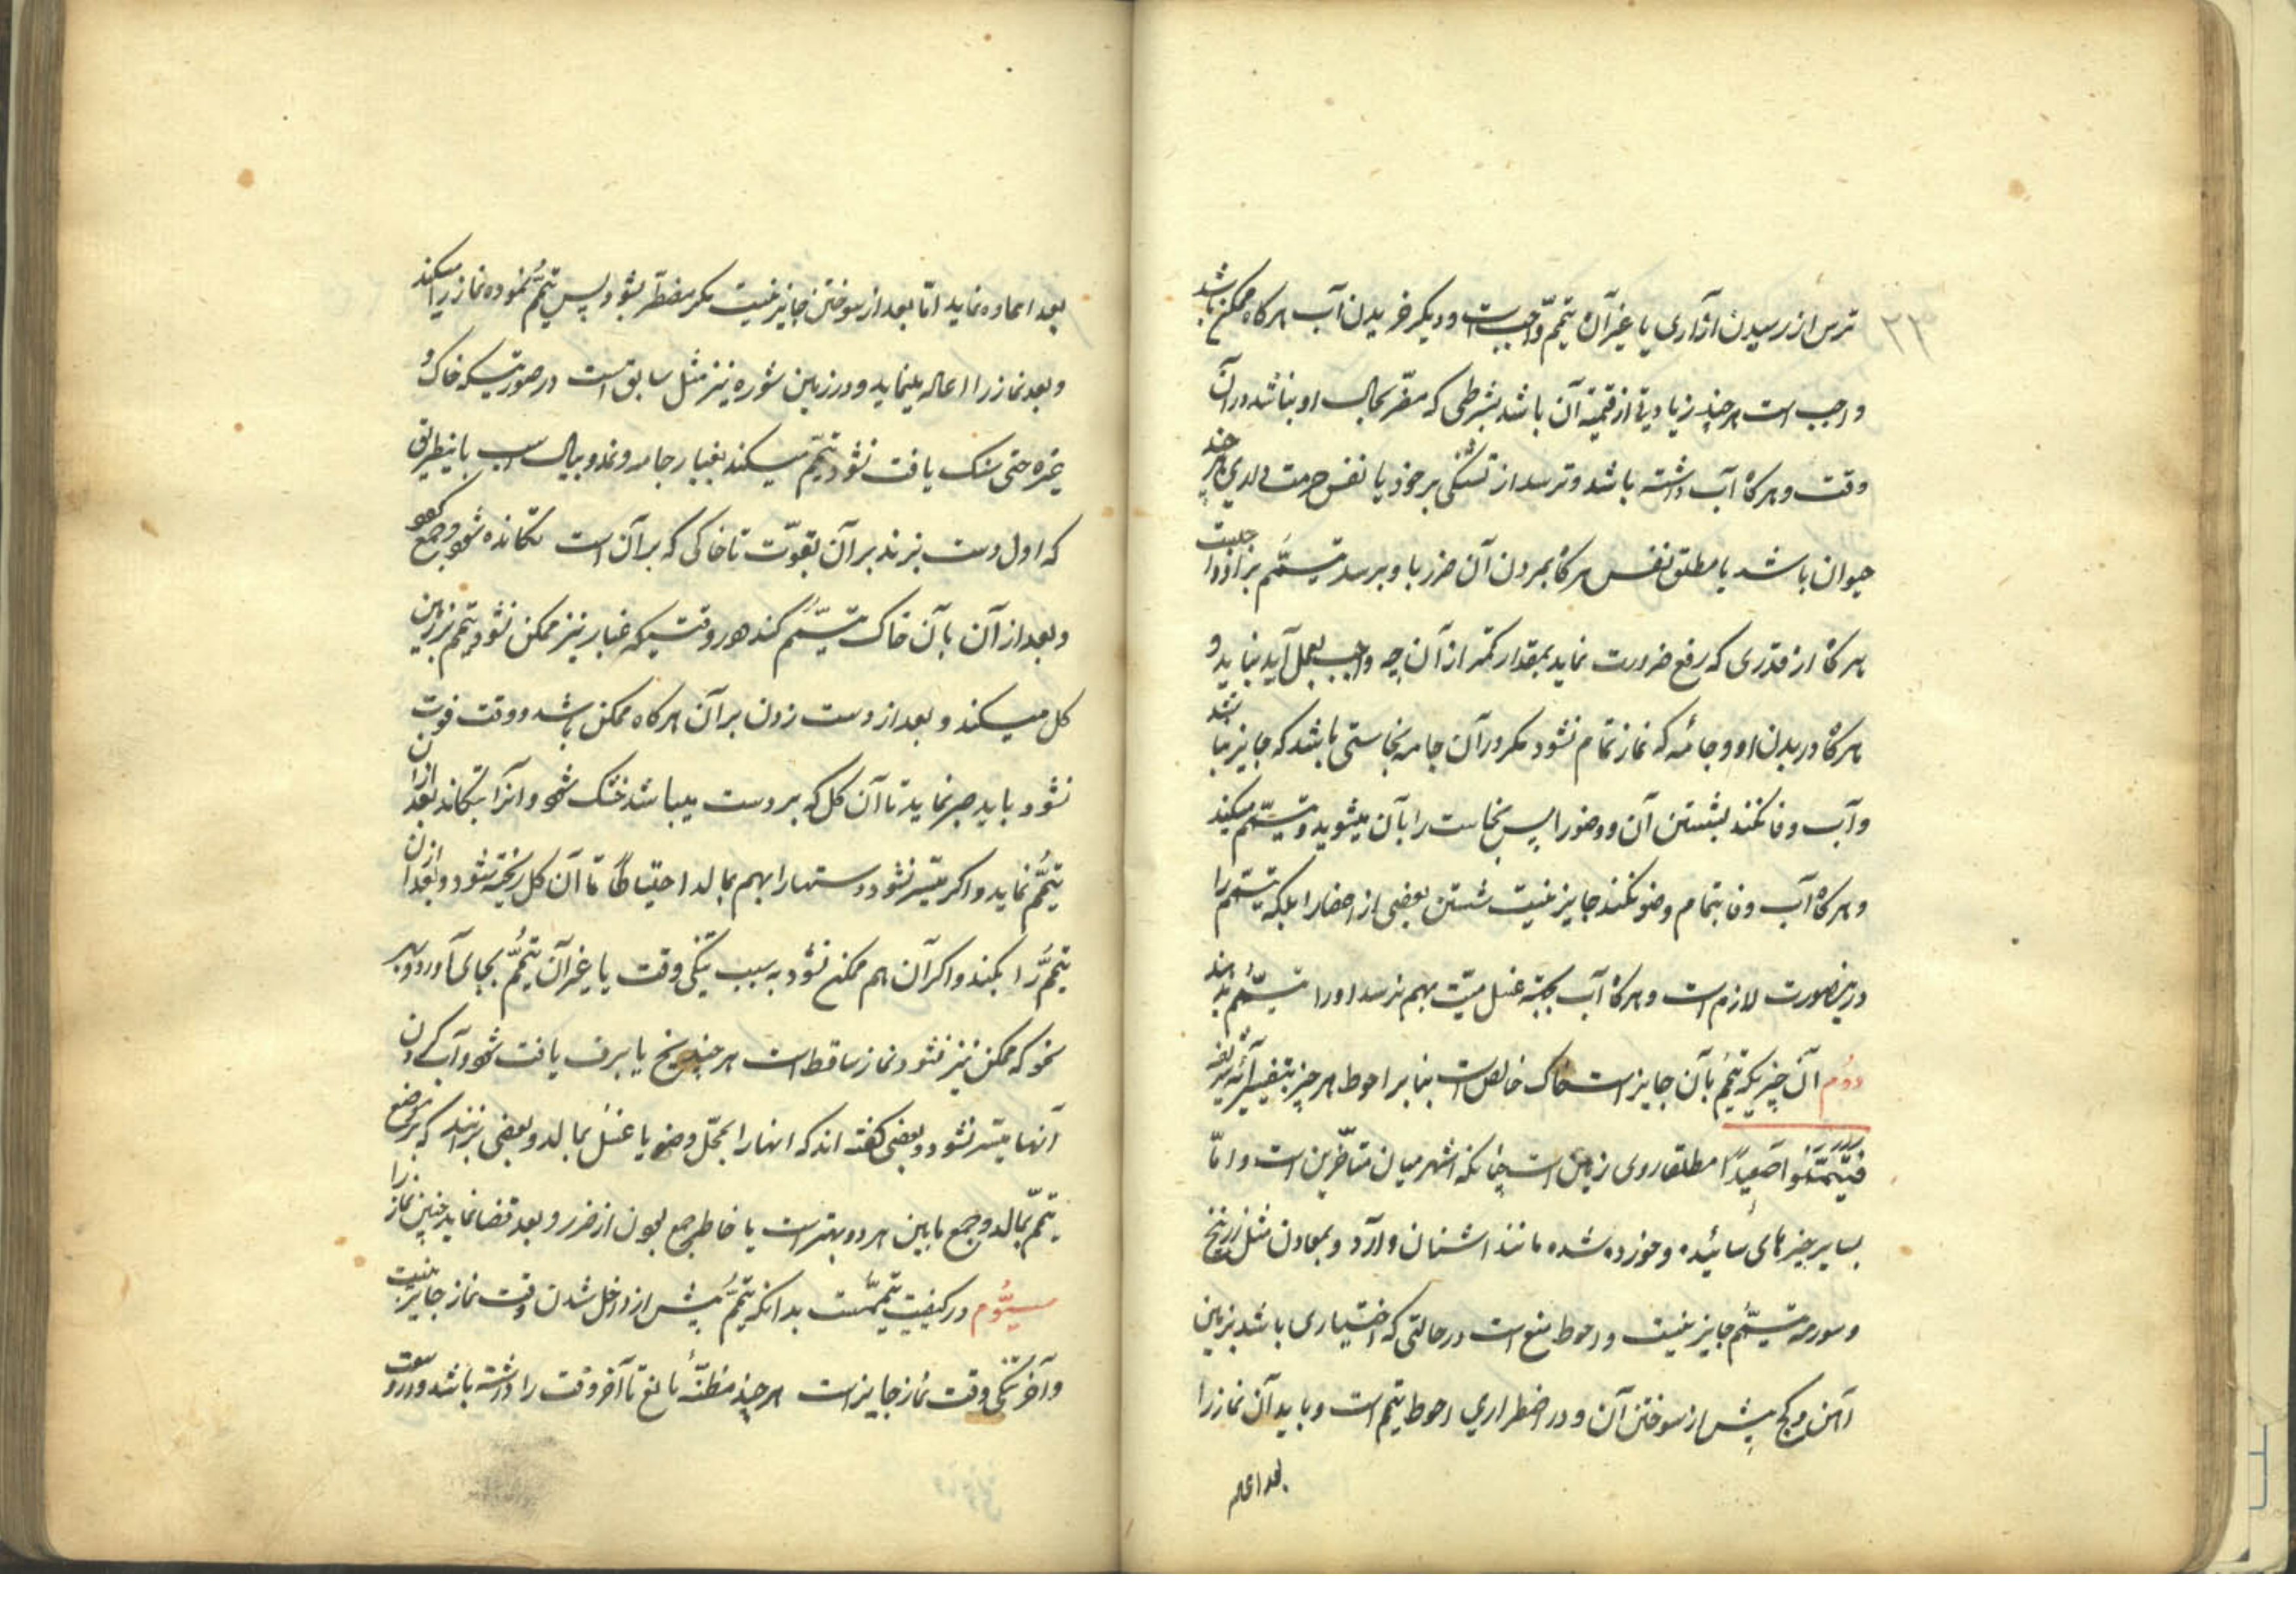 ۲۳
ترس از رسیدن آزاری یا غیر آن تیمم واجبست و دیکر خریدن آب هرکاه ممکن باشد
واجب است هرچند زیادتی از قیمة آن باشد بشرطی که مضّر بحال او نباشد در آن
وقت و هرکاه آب داشته باشد و ترسد از تشنکی بر خود یا نفس حرمت داری هرچند
حیوان باشد یا مطلق نفس هرکاه بمردن آن ضرر باو برسد تیمّم بر او واجبست
هرکاه از قدری که رفع ضرورت نماید بمقدار کمتر از آن چه واجب بعمل آید نیاید و
هرکاه در بدن او و جامۀ که نماز تمام نشود مکر در آن جامه نجاستی باشد که جایز نباشد
و آب وفا نکند بشستن آن و وضو را پس نجاست را بآن میشوید و تیمّم میکند
و هرکاه آب وفا بتمام وضو نکند جایز نیست شستن بعضی از اعضا را بلکه تیمّم را
درینصورت لازم است و هرکاه آب بجهة غسل میّت بهم نرسد او را تیمّم بدهند
دوُم آن چیزیکه تیمُّم بآن جایز است خاک خالص است بنابر احوط هرچند بتفسیر آیۀ شریفه
فَتَیَمَّمُوا صَعِیدًا مطلقا روی زمین است چنانکه اشهر میان متأخّرین است و امّا
بسایر چیزهای سائیده و خورده شده مانند اشنان و آرد و بمعادن مثل زرنیخ
و سورمه تیمّم جایز نیست و احوط منع است در حالتی که اختیاری باشد بزمین
آهن و کچ پیش از سوختن آن و در اضطراری احوط تیمم است و باید آن نماز را
بعد اعاده
بعد اعاده نماید امّا بعد از سوختن جایز نیست مکر مضطّر بشود پس تیمُّم نموده نماز را میکند
و بعد نماز را اعاده مینماید و در زمین شوره نیز مثل سابق است در صورتیکه خاک و
غیره حتی سنک یافت نشود تیمّم میکند بغبار جامه و نمد و یال اسب باینطریق
که اول دست بزند بر آن بقوّت تا خاکی که بر آن است تکانده شود و جمع شود
و بعد از آن بآن خاک تیمّم کند و هر وقتیکه غبار نیز ممکن نشود تیمم بزمین
کل میکند و بعد از دست زدن بر آن هرکاه ممکن باشد و وقت فوت
نشود باید صبر نماید تا آن کل که بر دست میباشد خشک شود و آنرا بتکاند بعد از آن
تیمُّم نماید و اکر میسّر نشود دستها را بهم بمالد احتیاطًا تا آن کل ریخته شود و بعد از آن
تیمُّم را بکند و اکر آن هم ممکن نشود به سبب تنکی وقت یا غیر آن تیمُّم بجای آورد و بهر
نحو که ممکن نیز نشود نماز ساقط است هرچند یخ یا برف یافت شود و آب کردن
آنها میّسر نشود و بعضی کفته اند که انها را بمحّل وضو یا غسل بمالد و بعضی برآنند که بر موضع
تیمّم بمالد و جمع مابین هر دو بهتر است با خاطر جمع بودن از ضرر و بعد قضا نماید چنین نماز را
سیّوُم در کیفیت تیمّمست بدانکه تیمُّم پیش از داخل شدن وقت نماز جایز نیست
و آخر تنکی وقت نماز جایز است هرچند مظنّۀ مانع تا آخر وقت را داشته باشد و در وسعت